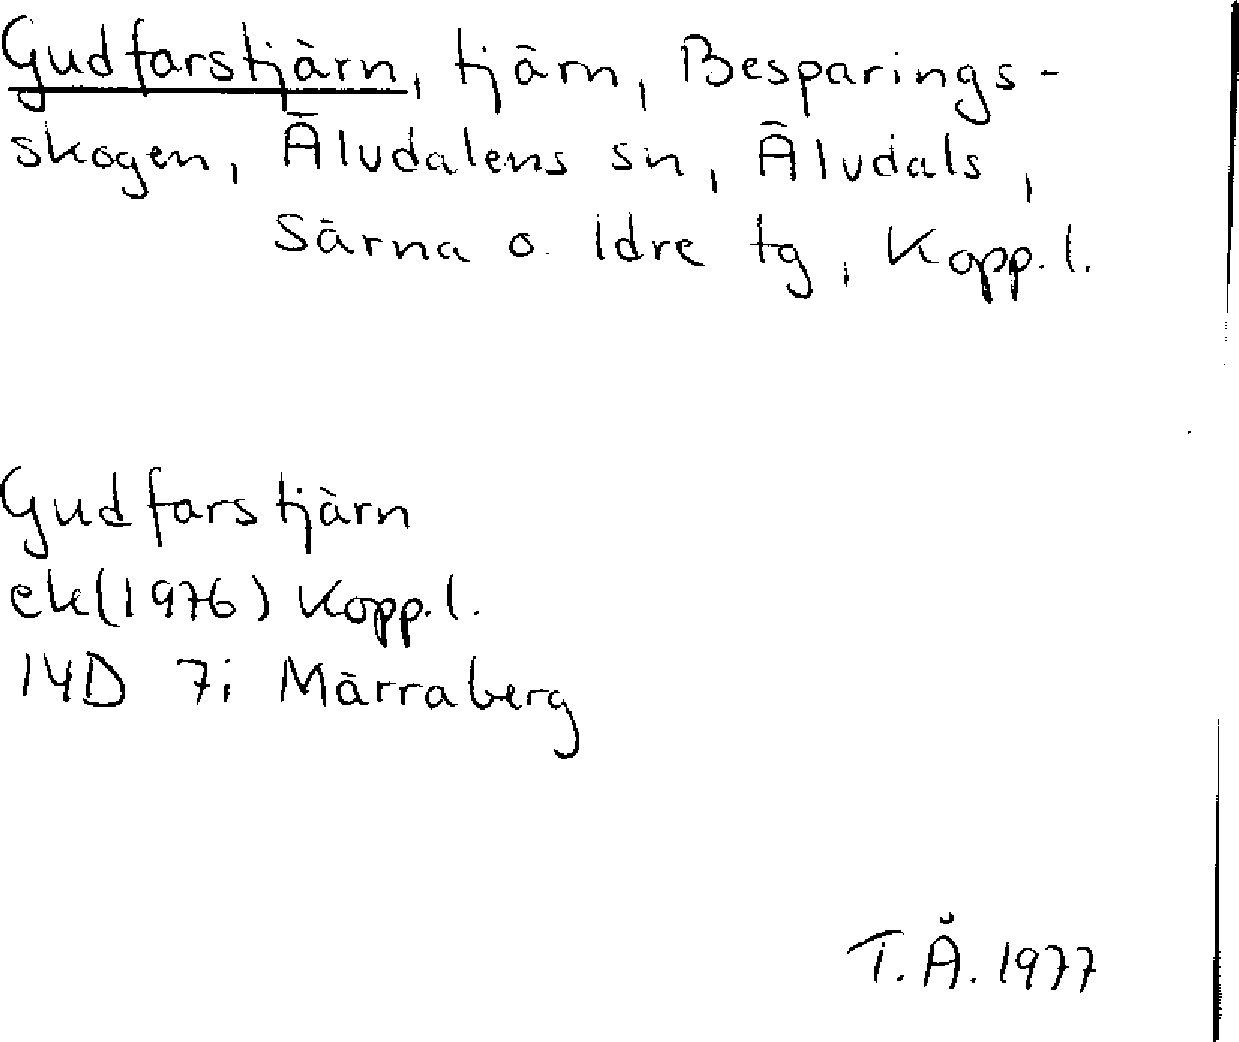 Gudfarstjärn, tjärn, Besparings-
skogen, Älvdalens sn, Älvdals,
Särna o. Idre tg, Kopp. l.
Gudfarstjärn
ek(1976) Kopp. l.
14D 7i Märraberg
T.Å. 1977